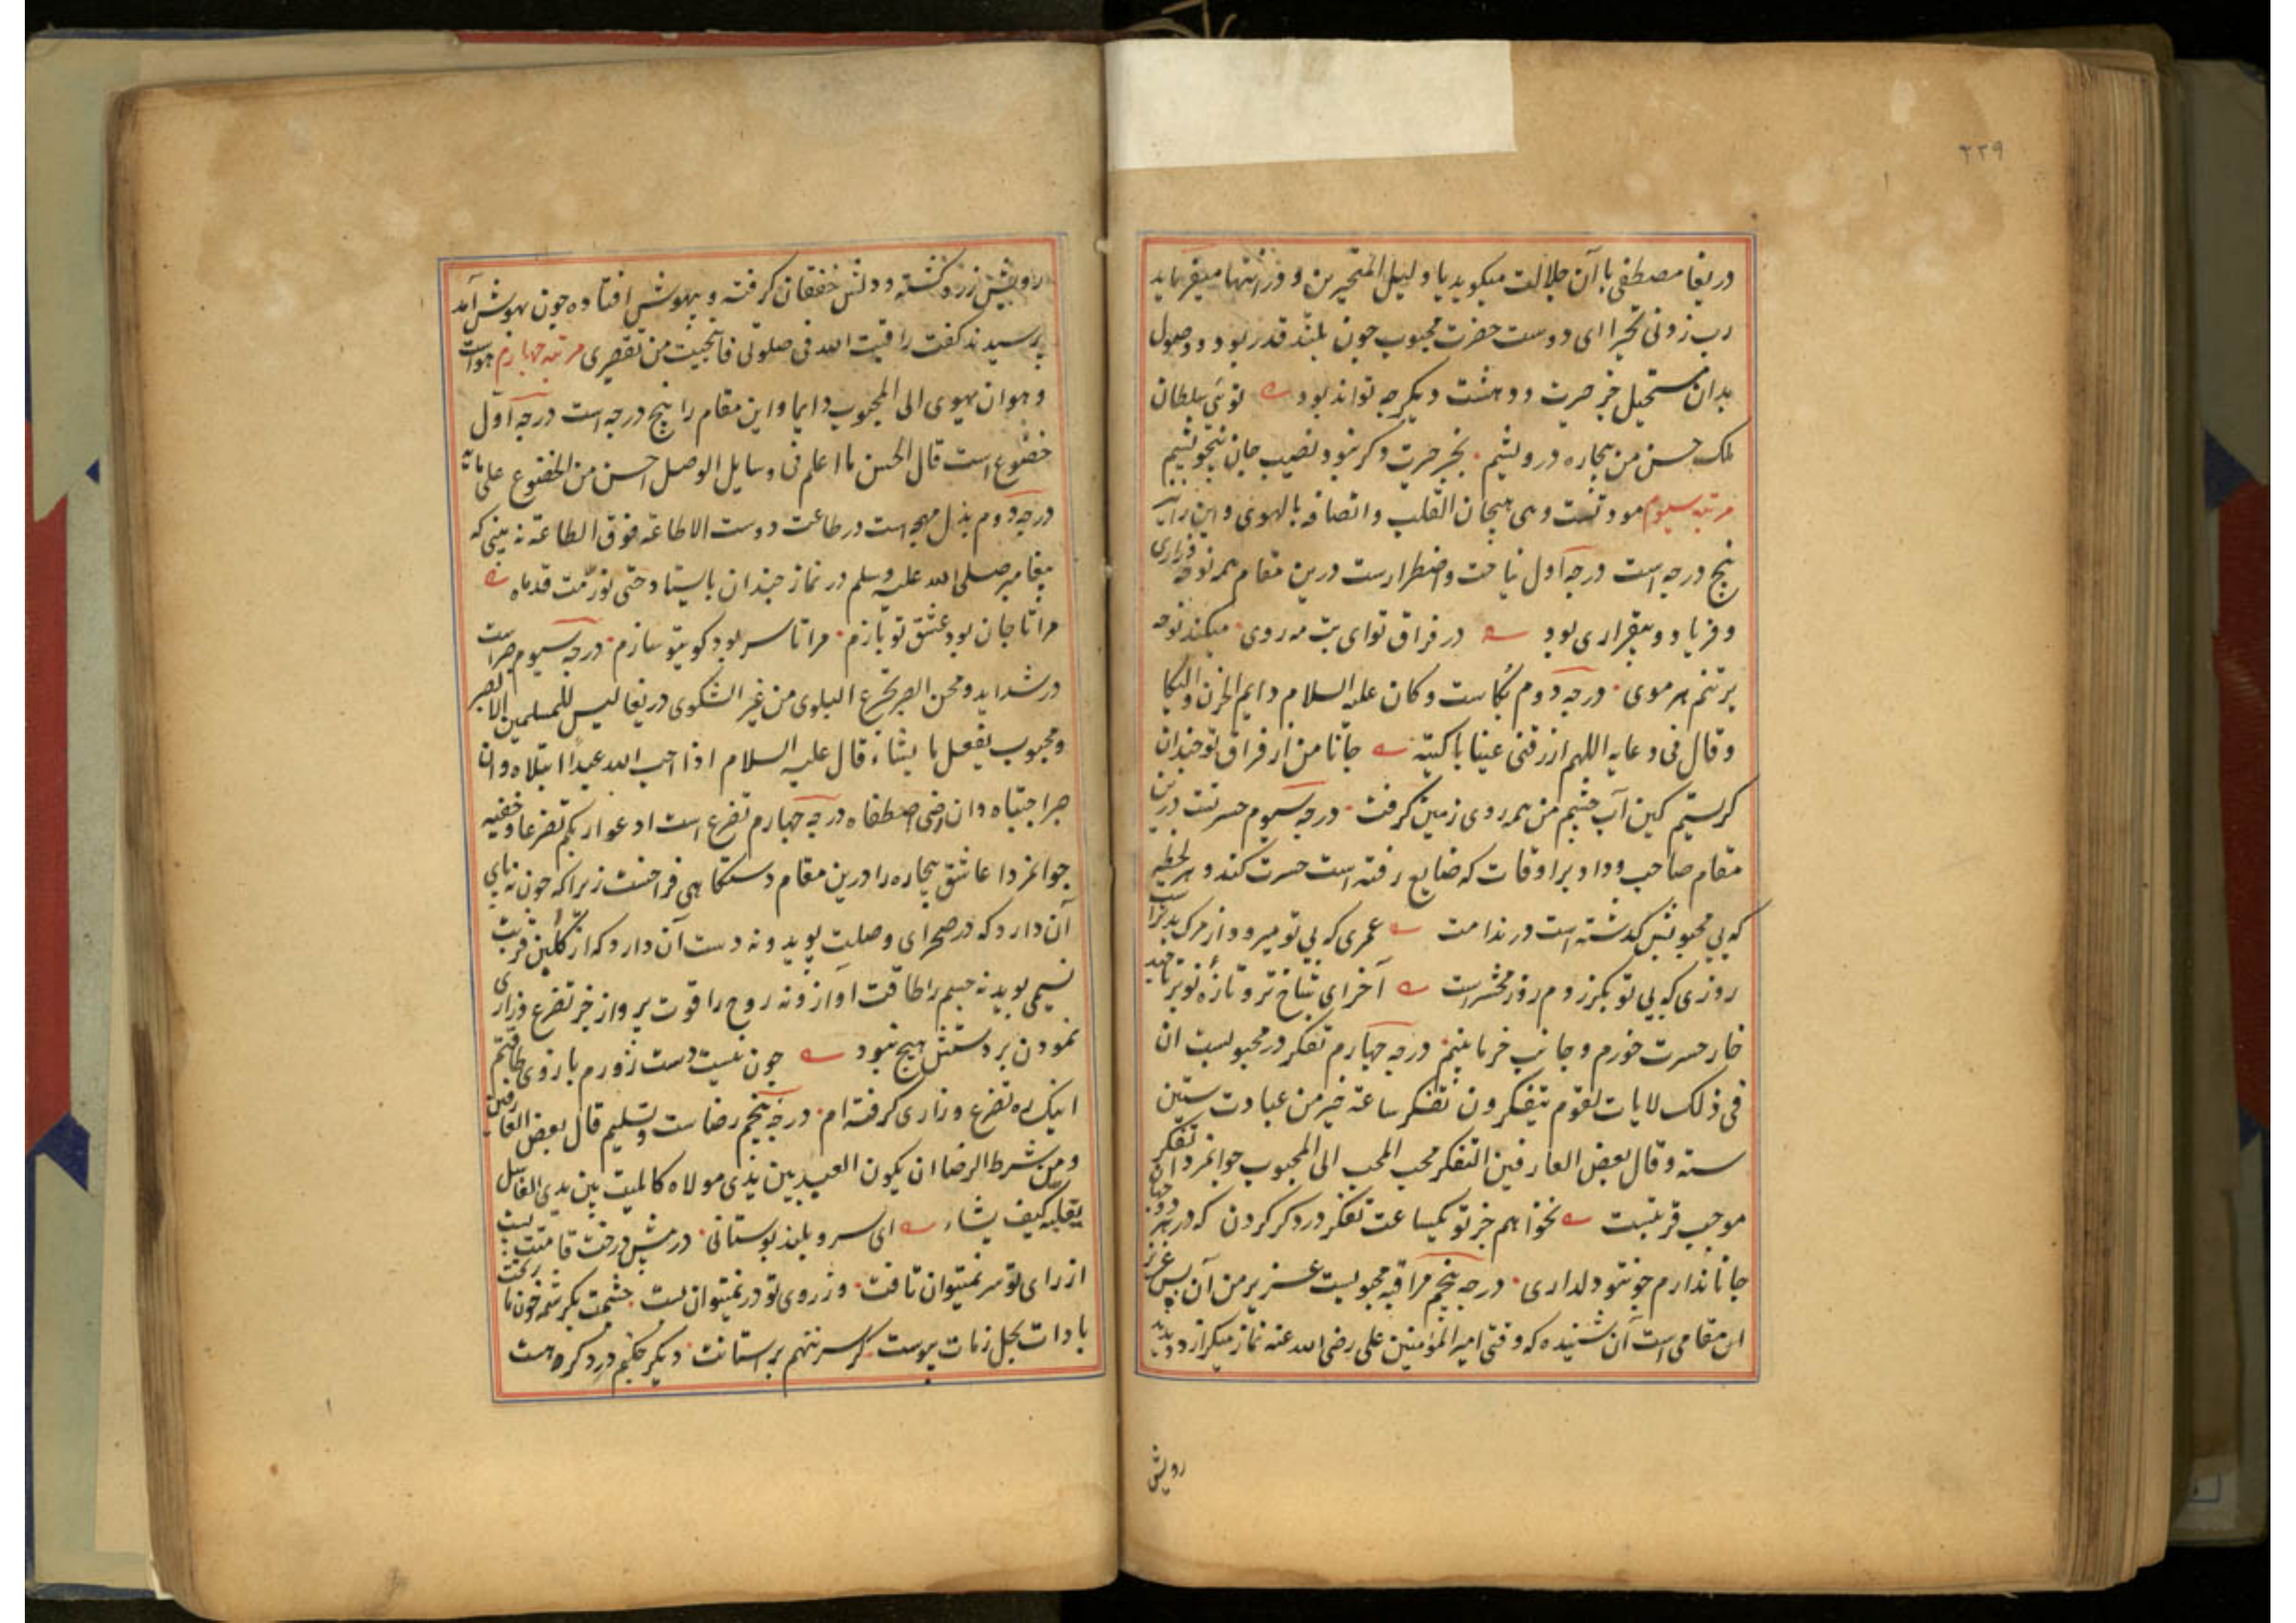 ۲۲۹
دریغا مصطفی با آن جلالت میکوید یا دلیل المتحیرین و وز انتها میفرماید
رب زدنی تحیرا ای دوست حضرت محبوب چون بلند قدر بود و وصول
بدان مستحیل جز حیرت و دهشت دیکر چه تواند بود توئی سلطان
ملک حسن من بیچاره درویشم بجز حیرت دکر نبود نصیب جان بیخویشم
مرتبه سیوم مودتست وهی هیجان القلب واتصافه بالهوی و این را
پنج درجه است درجه اول نیاحت و اضطرارست درین مقام همه نوحه وزاری
و فریاد و بیقراری بود در فراق تو ای بت مه روی میکند نوحه
بر تنم هر موی درجه دوم بکاست وکان علیه السلام دایم الحزن والبکا
وقال فی دعایه اللهم ارزقنی عینا باکیته جانا من از فراق تو چندان
کرستیم کین آب چشم من همه روی زمین کرفت درجه سیوم حسرتست درین
مقام صاحب وداد بر اوقات که ضایع رفته است حسرت کند و هر لحظه
که بی محبوبش کذشته است در ندامت عمری که بی تو میرود از مرک بدترست
روزی که بی تو بکزرد م روز محشرست آخر ای شاخ تر و تازه نوبر تا چند
خار حسرت خورم و جانب خرما بینم درجه چهارم تفکر در محبوبست ان
فی ذلک لایات لقوم یتفکرون تفکر ساعة خیر من عبادت ستین
سنه وقال بعض العارفین التفکر محب المحب الی المحبوب جوانمردا تفکر
موجب قربتست نخواهم جز تو یکساعت تفکر در دکر کردن که در هر
جانا ندارم چونتو دلداری درجه پنجم مراقبه محبوبست عزیر من آن بس عزیز
ان مقامی است آن شنیده که وقتی امیر المؤمنین علی رضی الله عنه نماز میکزارد دیدید
رویش
رویش زرد کشته و دلش خفقان کرفته و بیهوش افتاده چون بهوش آمد
پرسیدند کفت راقبت الله فی صلوتی فانجیت من تقصیری مرتبه چهارم هواست
وهو ان یهوی الی المحبوب دایما و این مقام را پنج درجه است درجه اول
خضوع است قال الحسن ما اعلم فی وسایل الوصل احسن من الخضوع علی بابه
درجه دوم بذل مهجه است در طاعت دوست الاطاعة فوق الطاعة نه بینی که
پیغامبر صلی الله علیه وسلم در نماز چندان بایستاد حتی تورمت قدماه
مرا تا جان بود عشق تو بازم مرا تا سر بود کو بتو سازم درجه سیوم صبراست
در شداید و محن الصبر تجرع البلوی من غیر الشکوی دریغا لیس للمسلمین الا الصبر
ومحبوب یفعل ما یشاء قال علیه السلام اذا احب الله عبدا ابتلاه وان
صبر اجتباه وان رضی اصطفاه درجه چهارم تضرع است ادعوا ربکم تضرعا وخفیه
جوانمردا عاشق بیچاره را درین مقام دستکاهی فراخست زیرا که چون نه پای
آن دارد که در صحرای وصلت پوید و نه دست آن دارد که از کلبن قربت
نسیمی بوید نه جسم را طاقت اواز و نه روح را قوت پرواز جز تضرع و زاری
نمودن بر دستش هیچ نبود چون نیست دست زورم بازوی طاقتم
اینک ره تضرع و زاری کرفته ام درجه پنجم رضاست و تسلیم قال بعض العارفین
ومن شرط الرضا ان یکون العبد بین یدی مولاه کالمیت بین یدی الغاسل
یقلبه کیف یشاء ای سرو بلند بوستانی در پیش درخت قامتت پست
از رای تو سر نمیتوان تافت وز روی تو در نمیتوان بست چشمت بکرشمه خون ما ریخت
کر سر ننهم بر استانت دیکر چکنم در دکر هست